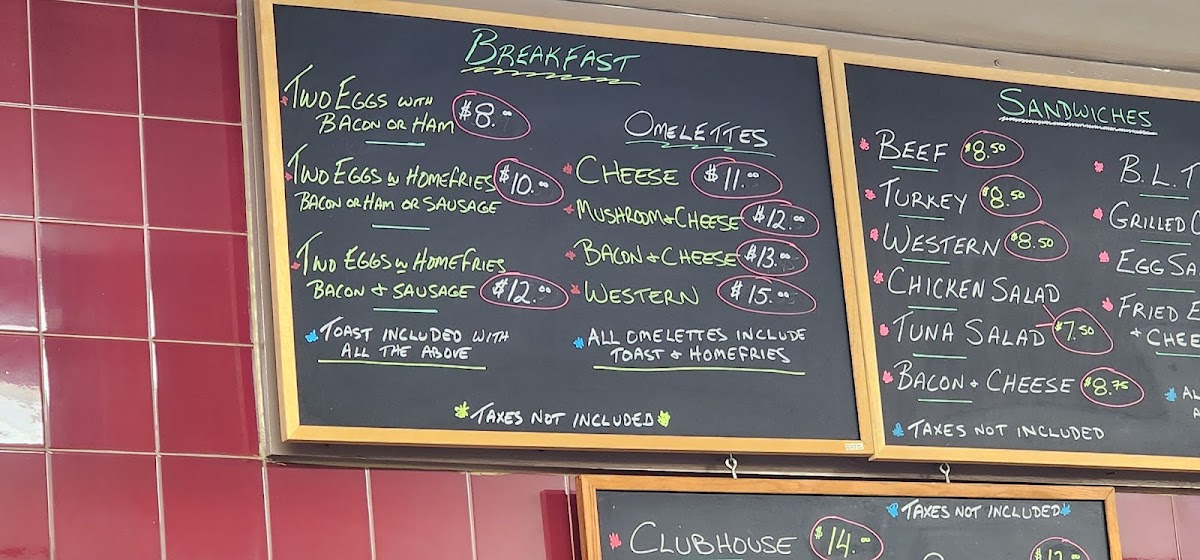 BREAKFAST
TWO EGGS WITH
BACON OR HAM $8.00
TWO EGGS W HOMEFRIES $10.00
BACON OR HAM OR SAUSAGE
TWO EGGS W HOMEFRIES
BACON & SAUSAGE $12.00
TOAST INCLUDED WITH
ALL THE ABOVE
OMELETTES
CHEESE $11.00
MUSHROOM & CHEESE $12.00
BACON & CHEESE $13.00
WESTERN $15.00
ALL OMELETTES INCLUDE
TOAST & HOMEFRIES
TAXES NOT INCLUDED
SANDWICHES
BEEF $8.50
TURKEY $8.50
WESTERN $8.50
CHICKEN SALAD
TUNA SALAD $7.50
BACON & CHEESE $8.75
TAXES NOT INCLUDED
B.L.T
GRILLED
EGG
FRIED
&
TAXES NOT INCLUDED
CLUBHOUSE $14.00